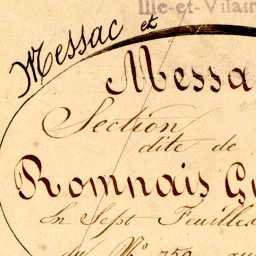 Ille-et-Vilain
Messac et
Messa
Section
dite de
Romnais Gu
En Sept Feuilles
du N° 750 au